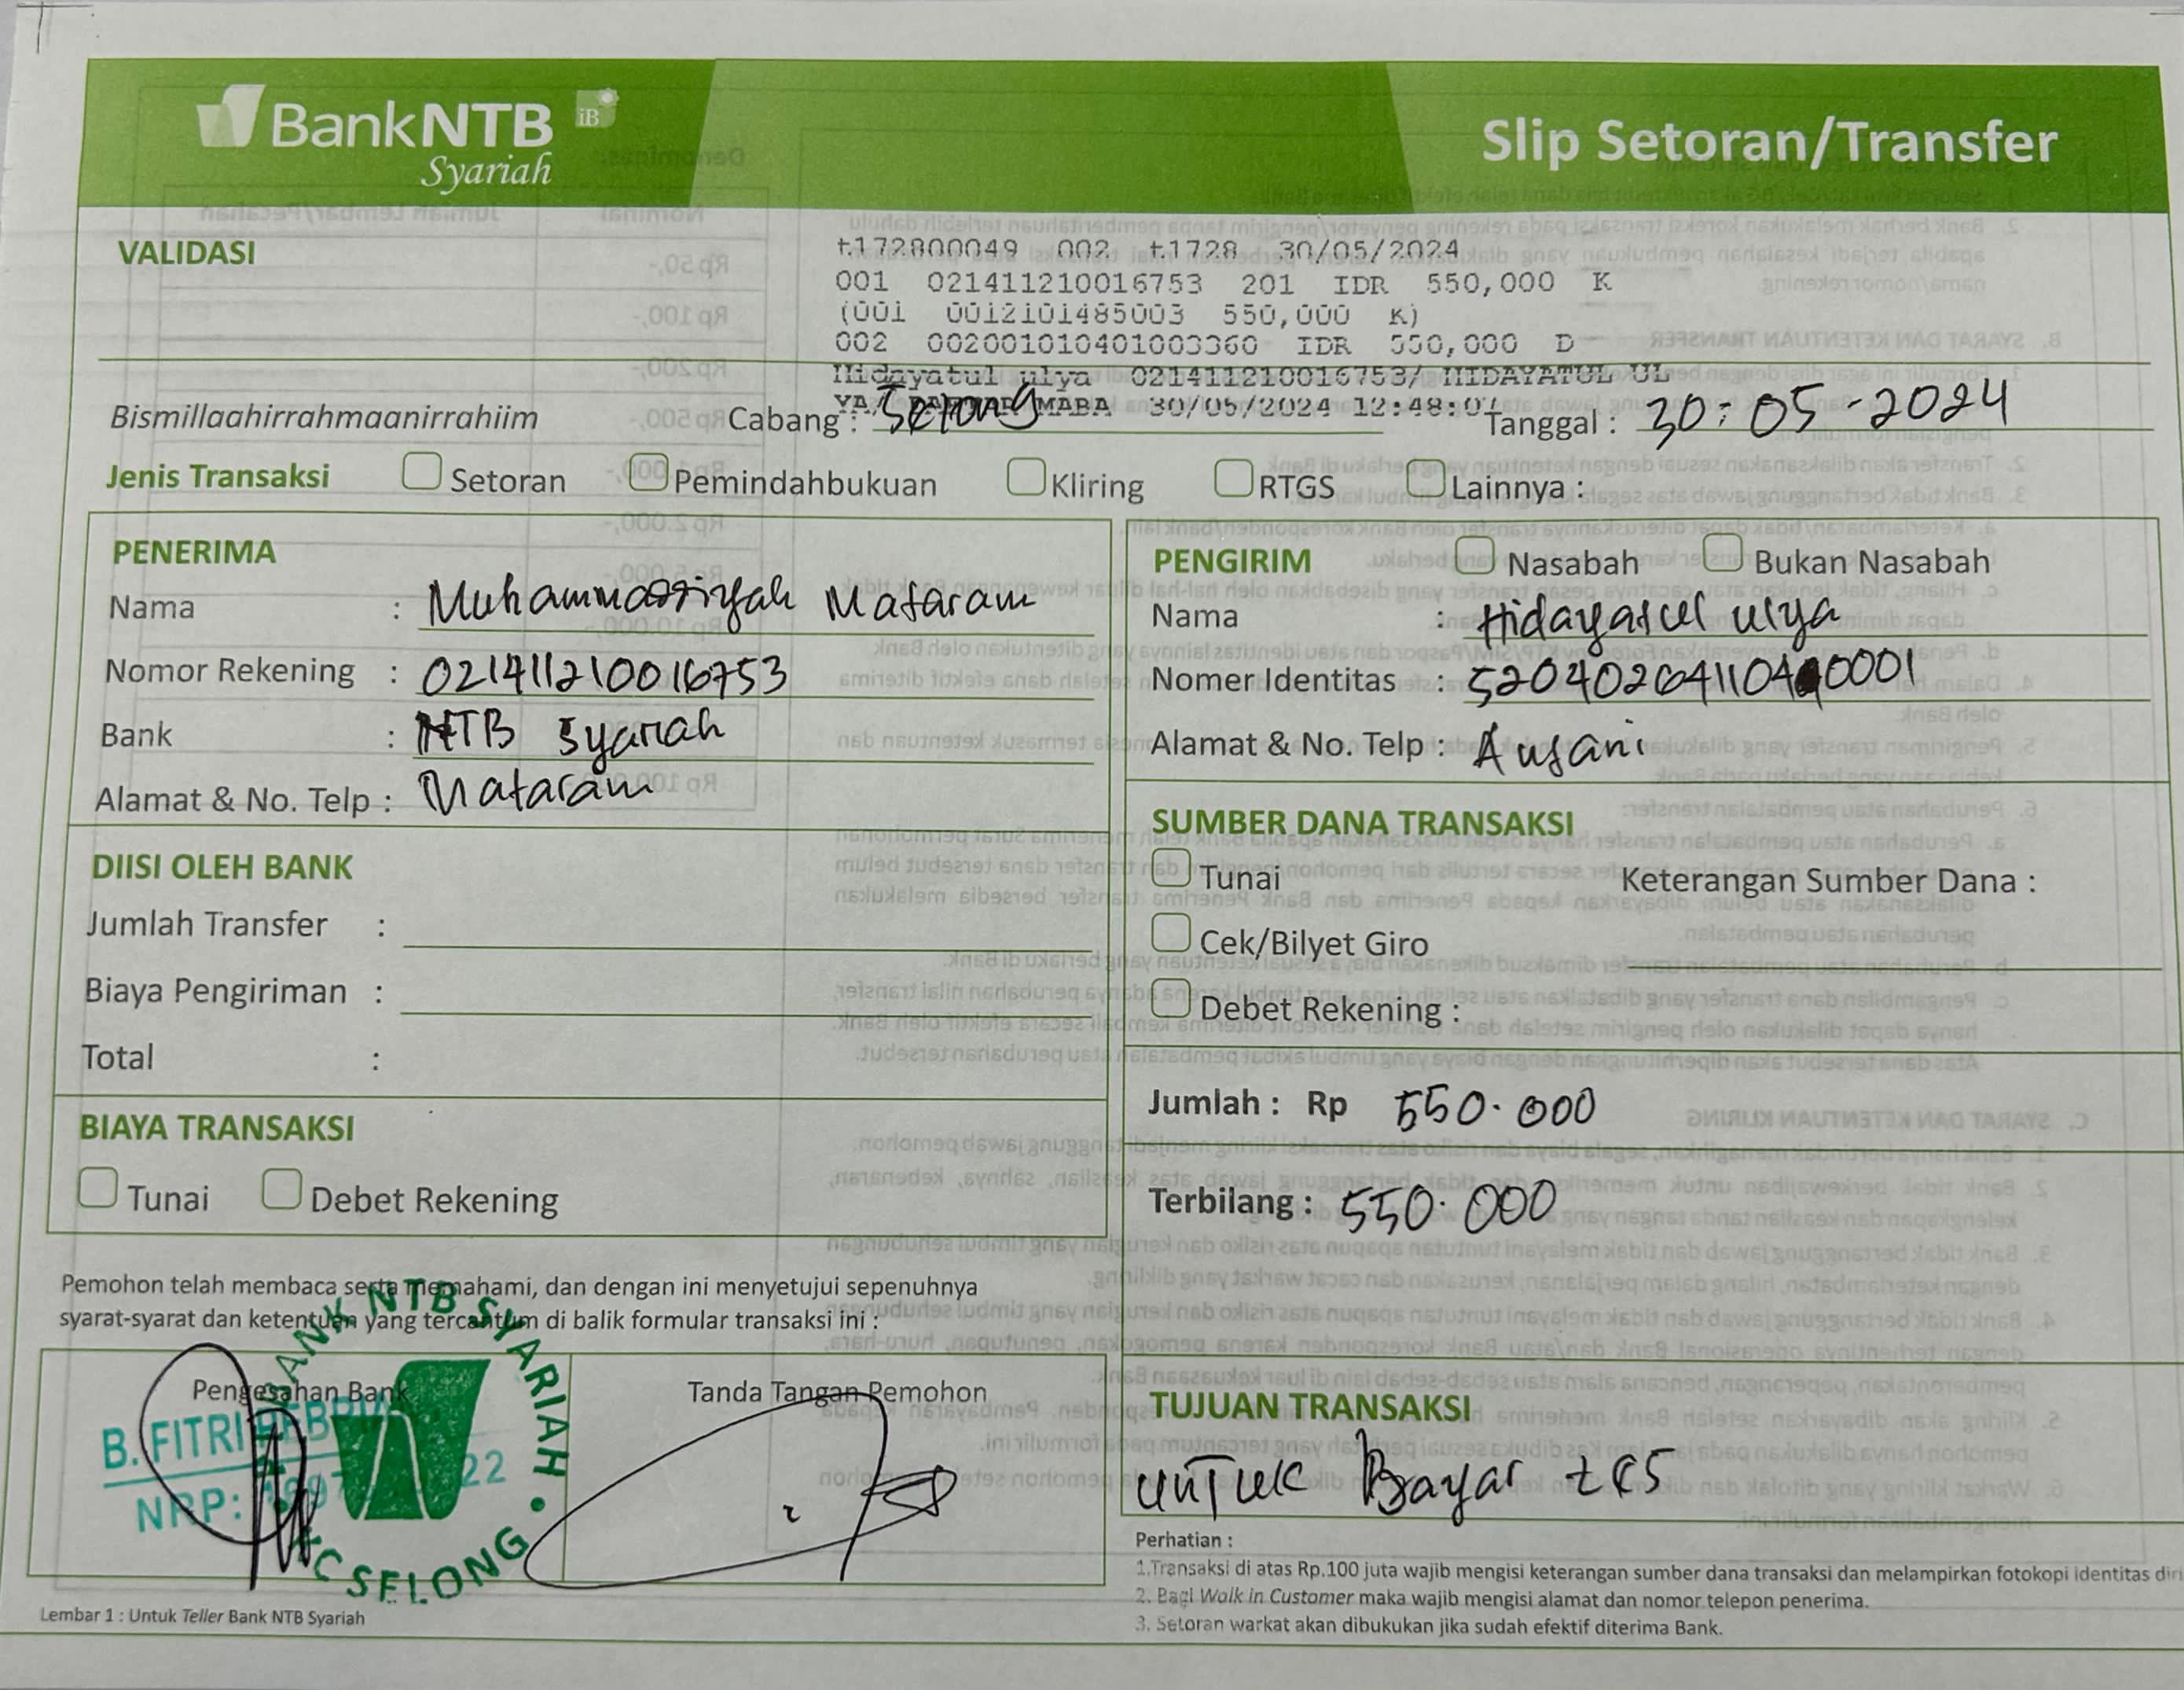 BankNTB iB
Syariah
Slip Setoran/Transfer
VALIDASI
t172800049 002 t1728 30/05/2024
001 021411210016753 201 IDR 550,000 K
(001 0012101485003 550,000 K)
002 002001010401003360 IDR 550,000 D
Hidayatul ulya 021411210016753/ HIDAYATUL UL
YA/ MABA 30/05/2024 12:48:07
Bismillaahirrahmaanirrahiim Cabang : Selong Tanggal : 30-05-2024
Jenis Transaksi Setoran Pemindahbukuan Kliring RTGS Lainnya :
PENERIMA
Nama : Muhammadiyah Mataram
Nomor Rekening : 021411210016753
Bank : NTB Syariah
Alamat & No. Telp : Mataram
PENGIRIM Nasabah Bukan Nasabah
Nama : Hidayatul ulya
Nomer Identitas :
Alamat & No. Telp :
DIISI OLEH BANK
Jumlah Transfer :
Biaya Pengiriman :
Total :
SUMBER DANA TRANSAKSI
Tunai Keterangan Sumber Dana :
Cek/Bilyet Giro
Debet Rekening :
BIAYA TRANSAKSI
Tunai Debet Rekening
Jumlah : Rp 550.000
Terbilang : 550.000
Pemohon telah membaca serta memahami, dan dengan ini menyetujui sepenuhnya
syarat-syarat dan ketentuan yang tercantum di balik formular transaksi ini :
Pengesahan Bank Tanda Tangan Pemohon
B. FITRI
NRP:
BANK NTB SYARIAH
KC SELONG
TUJUAN TRANSAKSI
untuk Bayar tes
Perhatian :
1.Transaksi di atas Rp.100 juta wajib mengisi keterangan sumber dana transaksi dan melampirkan fotokopi identitas diri
2. Bagi Walk in Customer maka wajib mengisi alamat dan nomor telepon penerima.
3. Setoran warkat akan dibukukan jika sudah efektif diterima Bank.
Lembar 1 : Untuk Teller Bank NTB Syariah